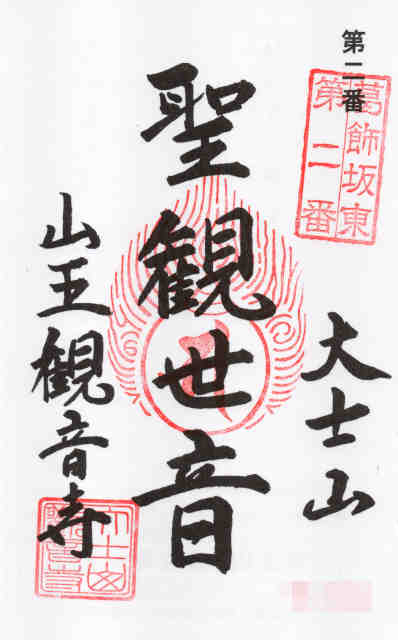 第二番
葛飾坂東
第二番
大士山
聖観世音
山王観音寺